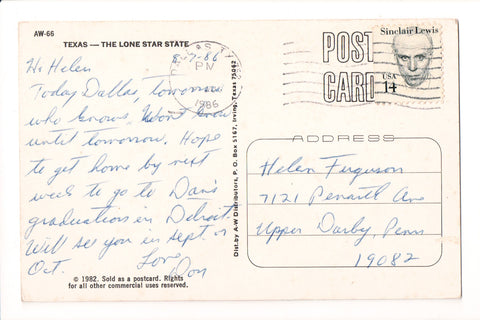 AW-66
TEXAS — THE LONE STAR STATE
5-7-86
Hi Helen
Today Dallas, tomorrow
who knows. Won't know
until tomorrow. Hope
to get home by next
week to go to Dan's
graduation in Detroit.
Will see you in Sept. or
Oct.
Love
Don
© 1982. Sold as a postcard. Rights
for all other commercial uses reserved.
Dist. by A-W Distributors, P. O. Box 5167, Irving, Texas 75062
PM
1986
POST
CARD
Sinclair Lewis
USA
14
ADDRESS
Helen Ferguson
7121 Penarth Ave
Upper Darby, Penn
19082